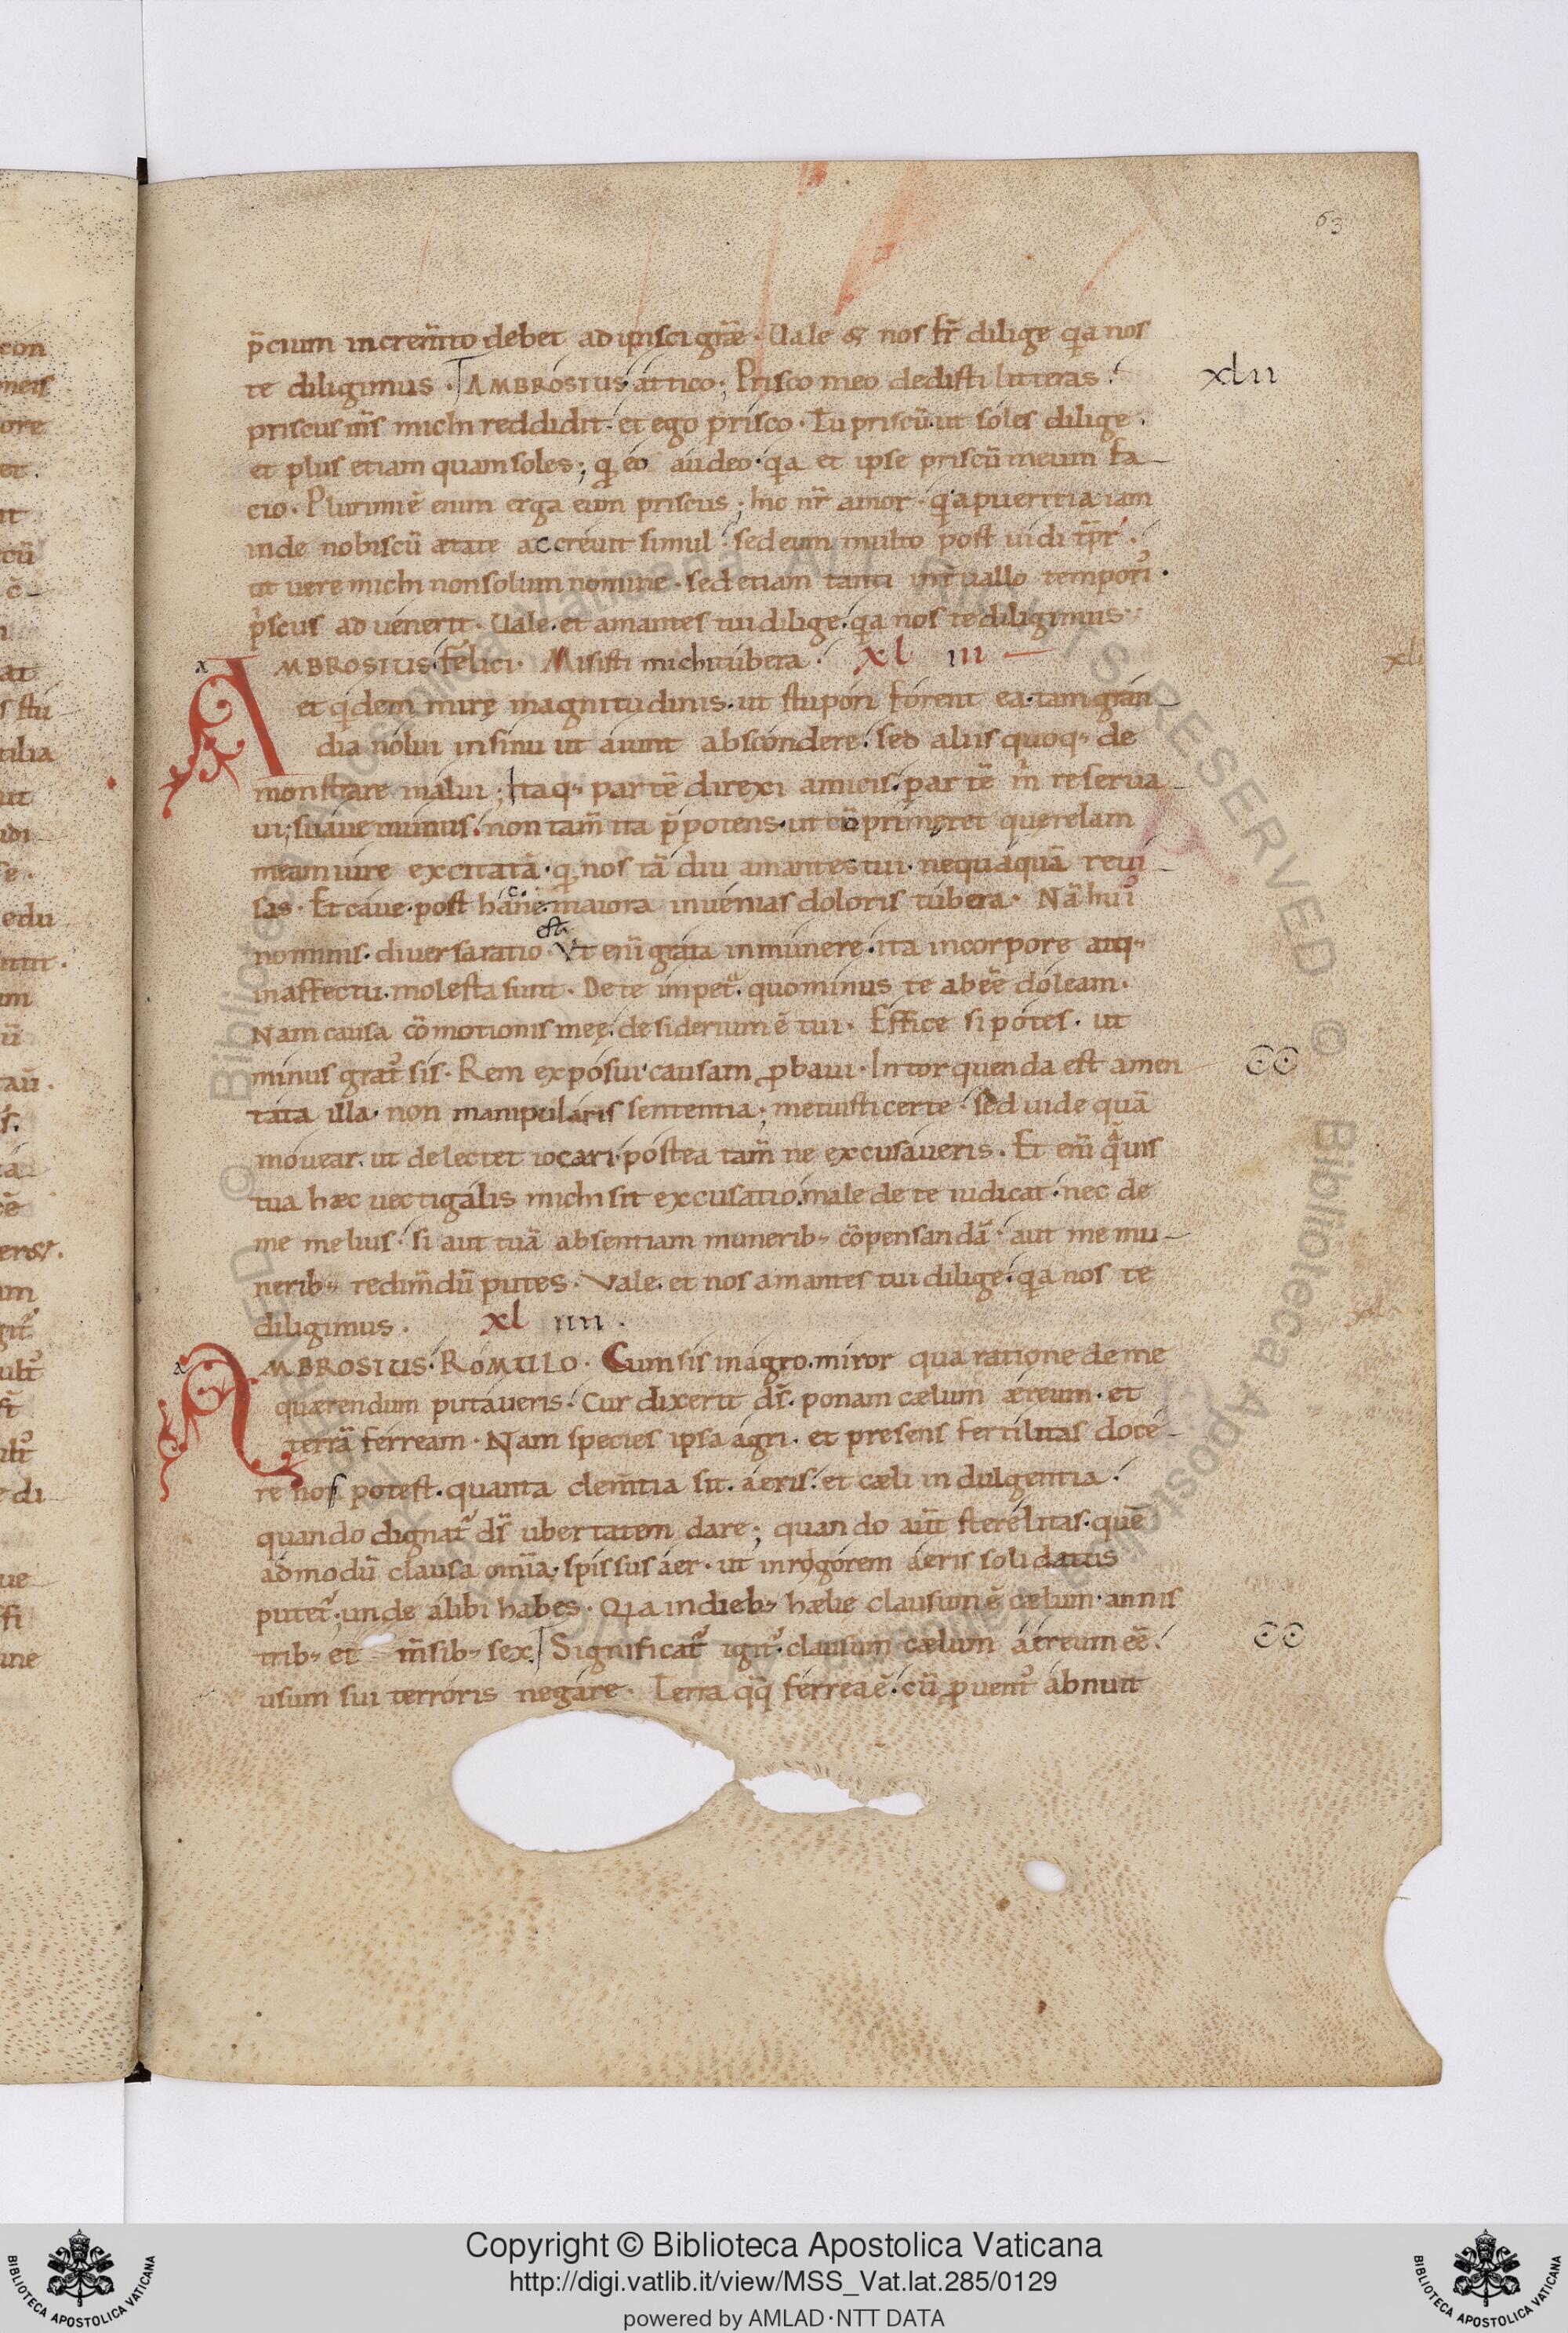 63
p̄cium increm̄to debet adipisci gr̄æ. Vale & nos fr̄ dilige qͥa nos
te diligimus. AMBROSIUS attico. Prisco meo dedisti litteras. xlii
priscus m̄s michi reddidit. et ego prisco. Tu priscū ut soles dilige.
et plus etiam quam soles; qͥ eo audeo. qͥa et ipse priscū meum fa-
cio. Plurimi ē enim erga eum priscus; hic nr̄ amor. qͥ a pueritia iam
inde nobiscū ætate accrevit simul. sed eum multo post uidi tp̄r.
ut vere michi non solum nomine. sed etiam tanti int̄uallo temporꝰ.
pͥscus advenerit. Vale. et amantes tui dilige. qͥa nos te diligimus.
AMBROSIUS felici. Misisti michi tubera. xl iii
et qͥdem mirę magnitudinis. ut stupori forent ea. tam gran-
dia nolui in sinu ut aiunt abscondere. sed aliis quoq; de
monstrare malui; Itaq; partē direxi amicis. partē m̄ reserva-
ui; suave munus. non tam̄ ita p̄potens. ut cōprimeret querelam
meam iure excitatā. qͥ nos tā diu amantes tui. nequaquā reui-
sas. Et cave. post hanc maiora invenias doloris tubera. Nā huiꝰ
nominis. diversa ratio est. Ut eni̅ grata in munere. ita in corpore atq;
in affectu. molesta sunt. De te impet̄. quominus te abeē doleam.
Nam causa cōmotionis meę. desiderium ē tui. Effice si potes. ut
minus gratꝰ sis. Rem exposui causam ꝓbavi. Intorquenda est amen
tata illa. non manipularis sententia; metuisti certe. sed vide quā
movear. ut delectet iocari. postea tam̄ ne excusaveris. Et eni̅ qͣ̄uis
tua hæc vectigalis michi sit excusatio. male de te iudicat. nec de
me melius. si aut tuā absentiam munerib; cōpensandā. aut me mu-
nerib; redim̄dū putes. Vale. et nos amantes tui dilige. qͥa nos te
diligimus. xl iiii.
AMBROSIUS. ROMULO. Cum sis in agro. miror qua ratione de me
quærendum putaveris. Cur dixerit ds̄. ponam cælum æreum. et
terrā ferream. Nam species ipsa agri. et presens fertilitas doce-
re nos potest. quanta clem̄tia sit. aeris. et cæli indulgentia.
quando dignatꝰ ds̄ ubertatem dare; quando aut̄ sterelitas. quē
admodū clausa omīa. spissus aer. ut in rigorem aeris solidatus
putetꝰ. unde alibi habes. Qͥa in dieb; hælie clausum ē cælum. annis
trib; et m̄sib; sex. Significatꝰ igitꝰ. clausum cælum aereum eē.
usum sui terroris negare. Terra qͦq̄ ferrea ē. cū ꝓventꝰ abnuit
Copyright © Biblioteca Apostolica Vaticana
http://digi.vatlib.it/view/MSS_Vat.lat.285/0129
powered by AMLAD·NTT DATA
BIBLIOTECA APOSTOLICA VATICANA
BIBLIOTECA APOSTOLICA VATICANA